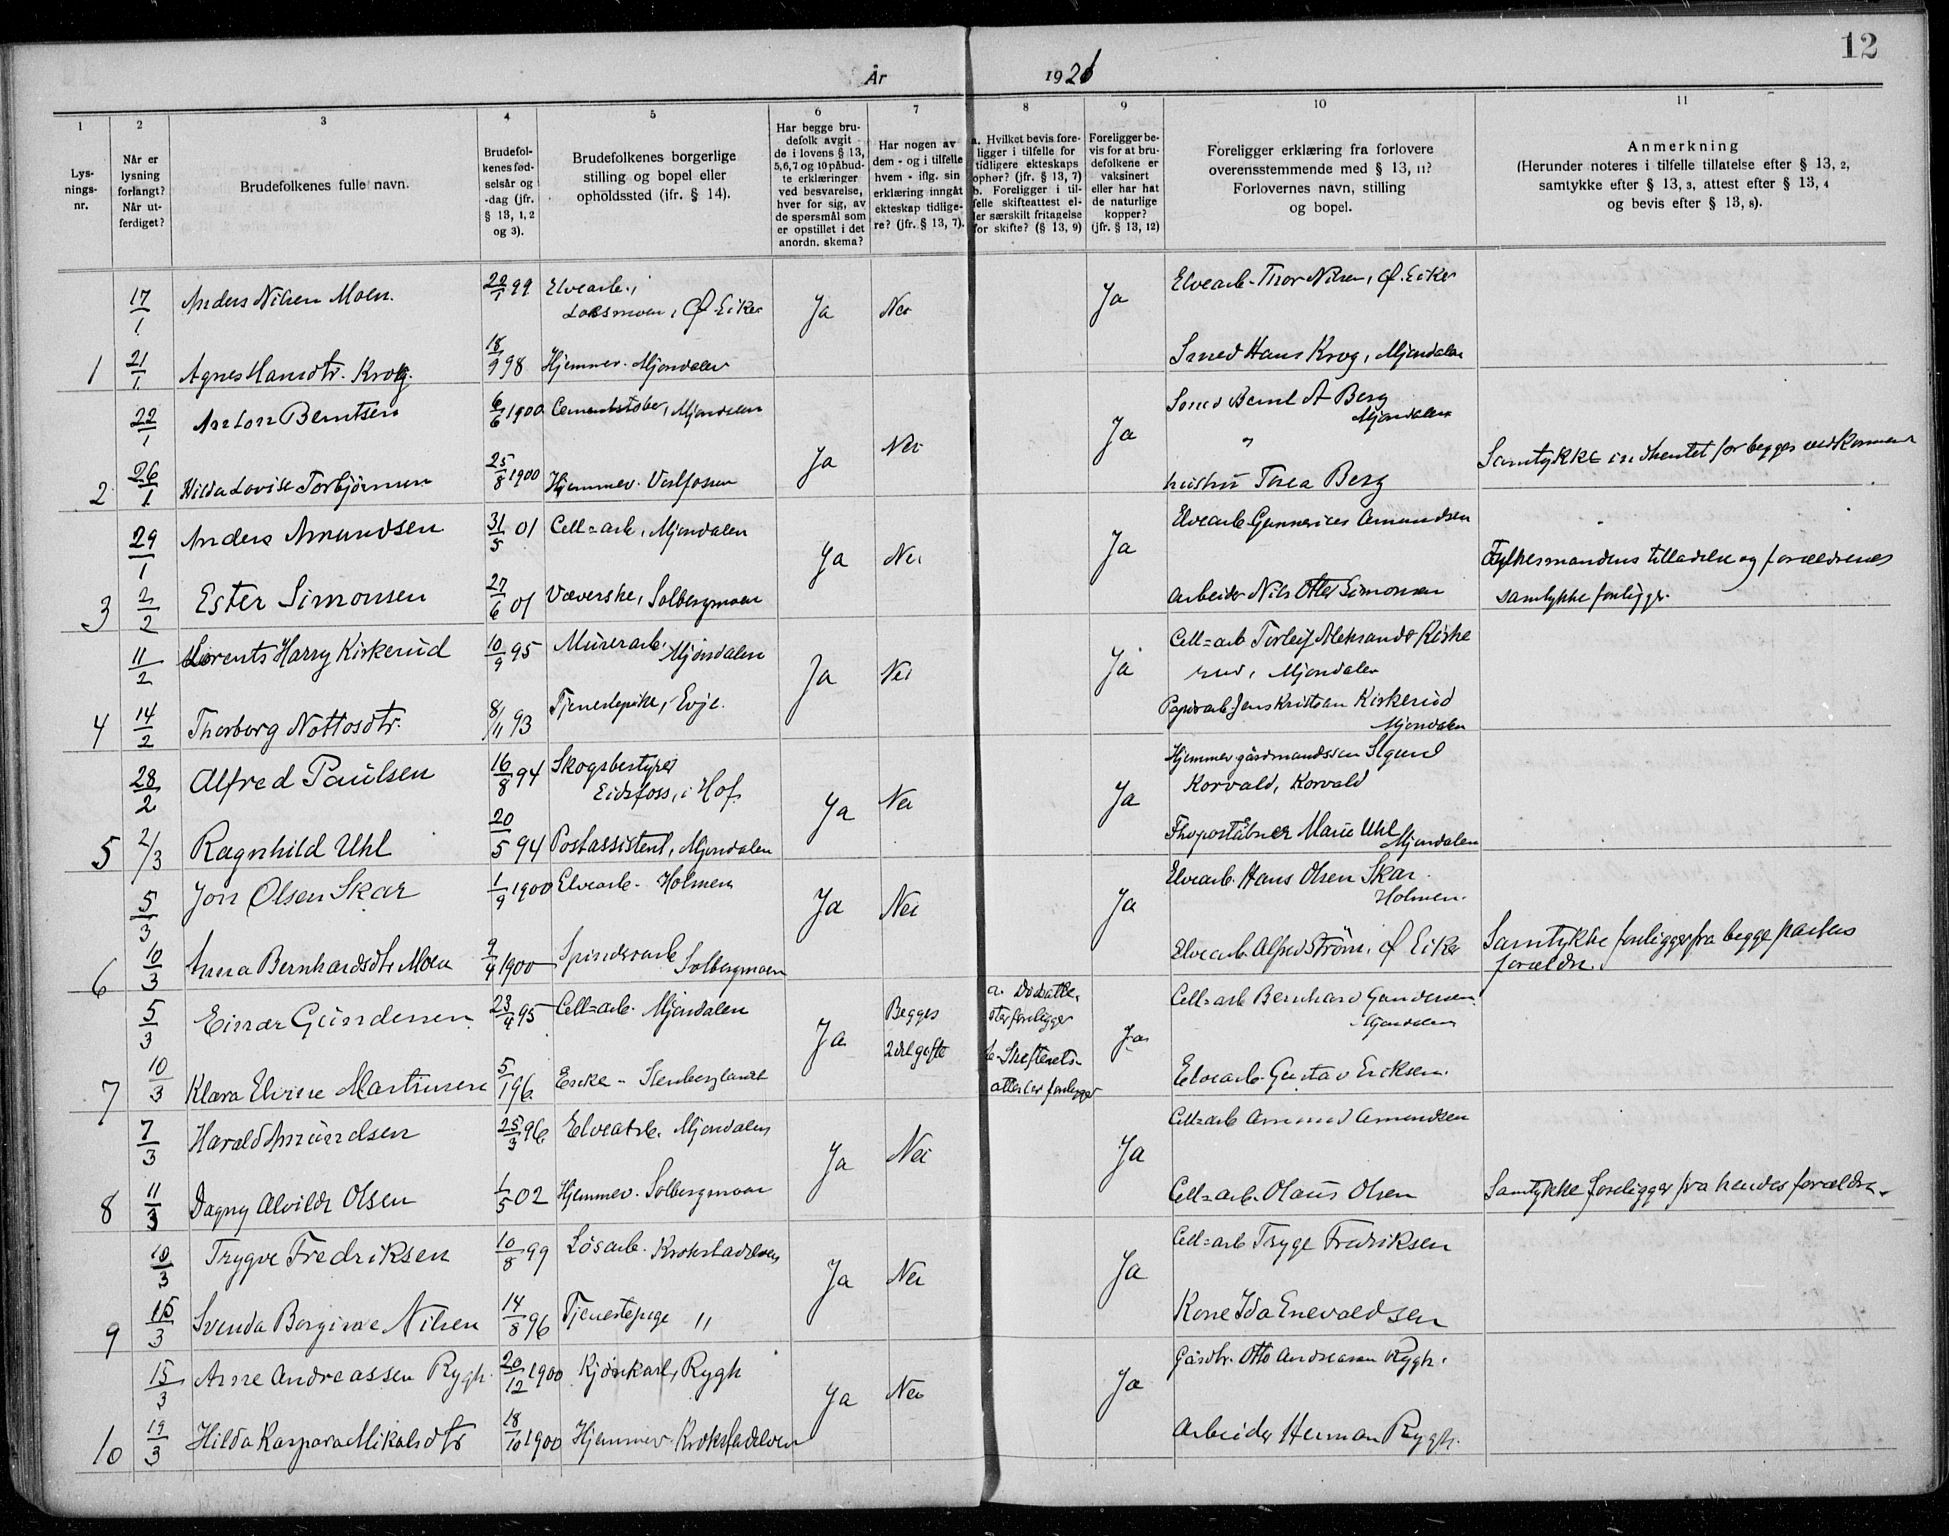 12
År 1921
1
2
3
4
5
6
7
8
9
10
11
Lys-
nings-
nr.
Når er
lysning
forlangt?
Når ut-
ferdiget?
Brudefolkenes fulle navn.
Brudefol-
kenes fød-
selsår og
-dag (jfr.
§ 13, 1, 2
og 3).
Brudefolkenes borgerlige
stilling og bopel eller
opholdssted (ifr. § 14).
Har begge bru-
defolk avgit
de i lovens § 13,
5,6,7 og 10 påbud-
te erklæringer
ved besvarelse,
hver for sig, av
de spørsmål som
er opstillet i det
anordn. skema?
Har nogen av
dem - og i tilfelle
hvem - iflg. sin
erklæring inngått
ekteskap tidlige-
re? (jfr. § 13, 7).
a. Hvilket bevis fore-
ligger i tilfelle for
tidligere ekteskaps
ophør? (jfr. § 13, 7)
b. Foreligger i til-
felle skifteattest el-
ler særskilt fritagelse
for skifte? (§ 13, 9)
Foreligger be-
vis for at bru-
defolkene er
vaksinert
eller har hat
de naturlige
kopper?
(jfr. § 13, 12)
Foreligger erklæring fra forlovere
overensstemmende med § 13, 11?
Forlovernes navn, stilling
og bopel.
Anmerkning
(Herunder noteres i tilfelle tillatelse efter § 13, 2,
samtykke efter § 13, 3, attest efter § 13, 4
og bevis efter § 13, 8).
17/1 Anders Nilsen Moen. 22/1 99 Elvearb., Ja Nei Ja Elvearb. Thor Nilsen, Ø. Eiker
Loesmoen, Ø. Eiker
1 21/1 Agnes Hansdtr. Krog. 18/9 98 Hjemmev. Mjøndalen Smed Hans Krog, Mjøndalen
22/1 Anton Berntsen 6/6 1900 Cementstøber, Mjøndalen Ja Nei Ja Smed Bernt A Berg
Mjøndalen
"
2 26/1 Hilda Lovise Torbjørnsen 25/8 1900 Hjemmev. Vestfossen hustru Thea Berg Samtykke indhentet for begges vedkommende
29/1 Anders Amundsen 31/5 01 Cell=arb, Mjøndalen Ja Nei Ja Elvearb. Gunnerius Amundsen
3 2/2 Ester Simonsen 27/6 01 Væverske, Solbergmoen Arbeider Nils Otto Simonsen Fylkesmandens tilladelse og forældrenes
samtykke foreligger.
11/2 Lorents Harry Kirkerud 10/9 95 Murerarb. Mjøndalen Ja Nei Ja Cell=arb Torleif Aleksander Kirke
rud, Mjøndalen
4 14/2 Thorborg Nottosdtr. 8/11 93 Tjenestepike, Evje. Papirarb. Jens Kristian Kirkerud
Mjøndalen
28/2 Alfred Paulsen 16/8 94 Skogsbestyrer Ja Nei Ja Hjemmev. gårdmandssøn Sigurd
Eidsfoss, i Hof. Korvald, Korvald
5 2/3 Ragnhild Uhl 20/5 94 Postassistent, Mjøndalen Fhvpoståbner Marie Uhl
Mjøndalen
5/3 Jon Olsen Skar 1/9 1900 Elvearb. Holmen Ja Nei Ja Elvearb. Hans Olsen Skar.
Holmen.
6 10/3 Anna Bernhardsdtr Moen 9/4 1900 Spinderarb Elvearb. Alfred Strøm, Ø Eiker Samtykke foreligger fra begge parters
Solbergmoen forældre.
5/3 Einar Gundersen 23/4 95 Cell=arb. Mjøndalen Ja Begges a. Dødsatte. Ja Cell=arb Bernhard Gundersen
2det gifte ster foreligger Mjøndalen
7 10/3 Klara Elvine Martinsen 5/1 96 Enke - Stenberglandet b. Skifterets- Elvearb. Gustav Eriksen.
attester foreligger
7/3 Harald Amundsen 25/3 96 Elvearb. Mjøndalen Ja Nei Ja Cell=arb Amund Amundsen
8 11/3 Dagny Alvilde Olsen 1/5 02 Hjemmev. Solbergmoen Cell=arb. Olaus Olsen Samtykke foreligger fra hendes forældre.
10/3 Trygve Fredriksen 10/8 99 Løsarb. Krokstadelven Ja Nei Ja Cell=arb Trygve Fredriksen
9 15/3 Svenda Borgine Nilsen 14/8 96 Tjenestepige " Kone Ida Enevaldsen
15/3 Arne Andreassen Rygh. 20/12 1900 Kjørekarl, Rygh Ja Nei Ja Gårdbr. Otto Andreasen Rygh.
10 19/3 Hilda Kaspara Mikalsdtr 18/10 1900 Hjemmev. Krokstadelven Arbeider Herman Rygh.